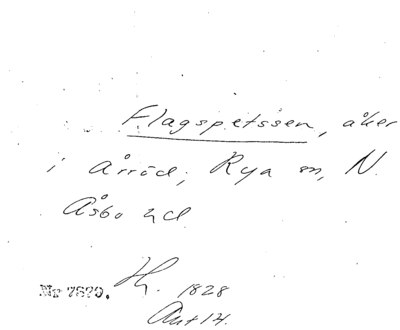 Flagspetssen, åker
i Årröd, Rya sn, N.
Åsbo hd
Nr 7870. H. 1828
Akt 14.